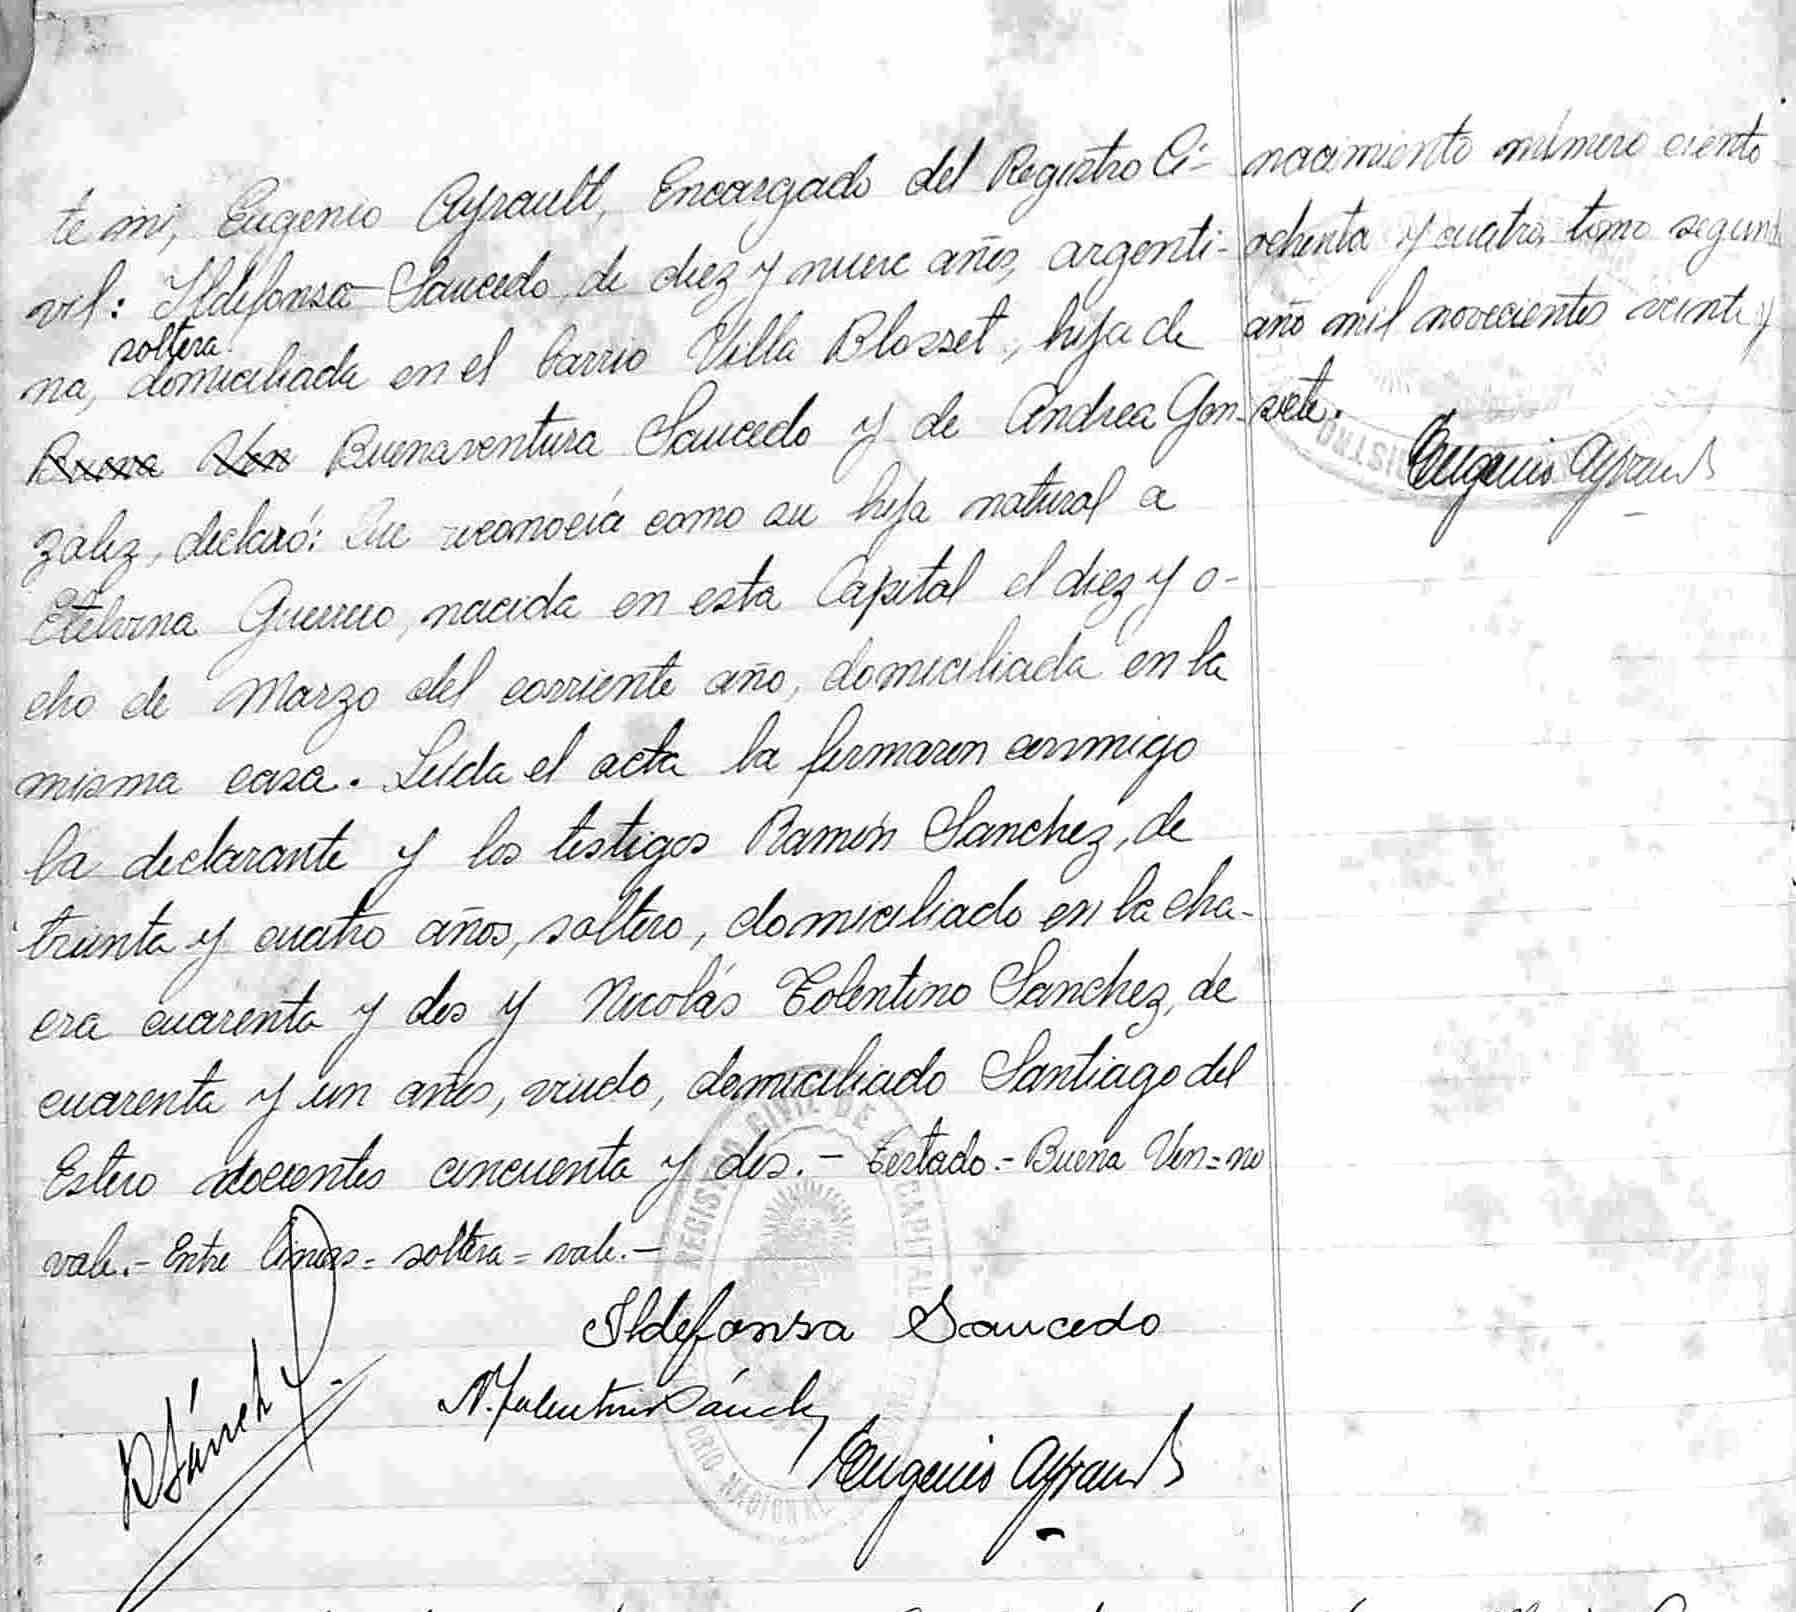 te mi, Eugenio Ayrault, Encargado del Registro Ci-
vil: Ildefonsa Saucedo, de diez y nueve años, argenti-
soltera
na, domiciliada en el barrio Villa Blosset, hija de
Buena Ven Buenaventura Saucedo y de Andrea Gon-
zalez, declaró: Que reconocía como su hija natural a
Etelvina Guerrero, nacida en esta Capital el diez y o-
cho de Marzo del corriente año, domiciliada en la
misma casa. Leída el acta la firmaron conmigo
la declarante y los testigos Ramón Sanchez, de
treinta y cuatro años, soltero, domiciliado en la cha-
cra cuarenta y dos y Nicolás Tolentino Sanchez, de
cuarenta y un años, viudo, domiciliado Santiago del
Estero docientos cincuenta y dos.- Testado.- Buena Ven=no
vale.- Entre lineas= soltera = vale.-
Ildefonsa Saucedo
R Sánchez
N. Tolentino Sánchez
Eugenio Ayrault
nacimiento número ciento
ochenta y cuatro, tomo segundo
año mil novecientos veinte y
siete.
Eugenio Ayrault
REGISTRO CIVIL DE CAPITAL